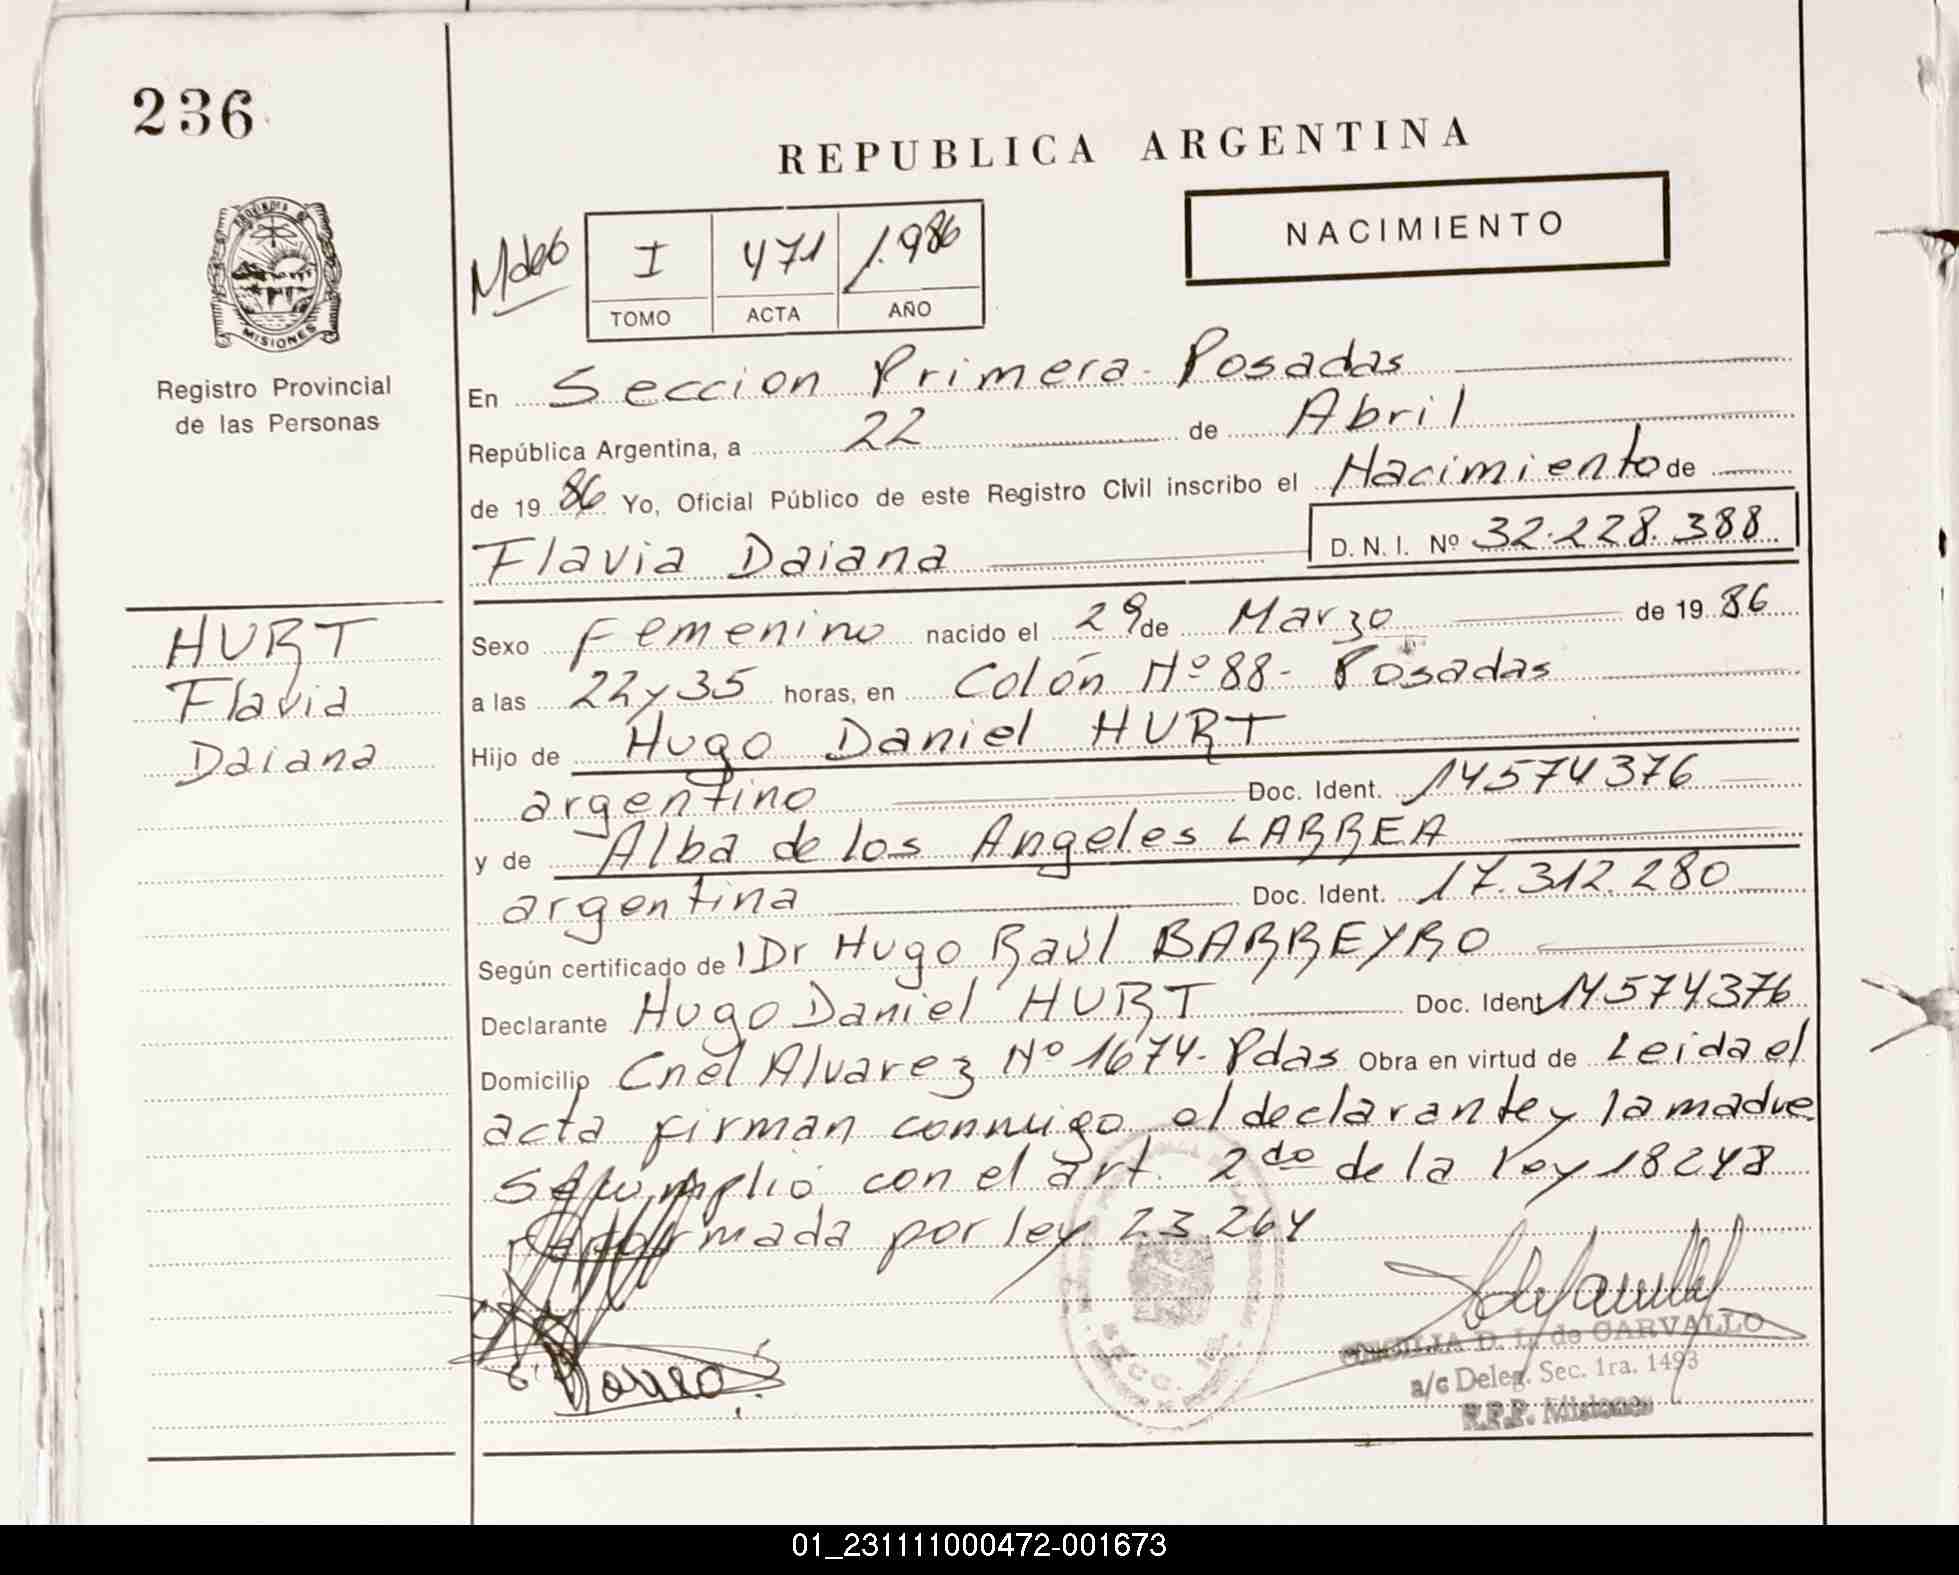 236
REPUBLICA ARGENTINA
NACIMIENTO
I 471 1.986
TOMO ACTA AÑO
PROVINCIA DE
MISIONES
Registro Provincial
de las Personas
En Seccion Primera - Posadas
República Argentina, a 22 de Abril
de 1986 Yo, Oficial Público de este Registro Civil inscribo el Nacimiento de
Flavia Daiana D. N. I. Nº 32.228.388
HURT
Flavia
Daiana
Sexo Femenino nacido el 29 de Marzo de 1986
a las 22 y 35 horas, en Colón Nº 88 - Posadas
Hijo de Hugo Daniel HURT
argentino Doc. Ident. 14574376
y de Alba de los Angeles LARREA
argentina Doc. Ident. 17.312.280
Según certificado de Dr Hugo Raúl BARREYRO
Declarante Hugo Daniel HURT Doc. Ident 14574376
Domicilio Cnel Alvarez Nº 1674 - Pdas Obra en virtud de Leida el
acta firman conmigo el declarante y la madre
Se cumplió con el art. 2do de la ley 18248
Reformada por ley 23.264
D. L. de CARVALLO
a/c Deleg. Sec. 1ra. 1493
R.P.P. Misiones
01_231111000472-001673